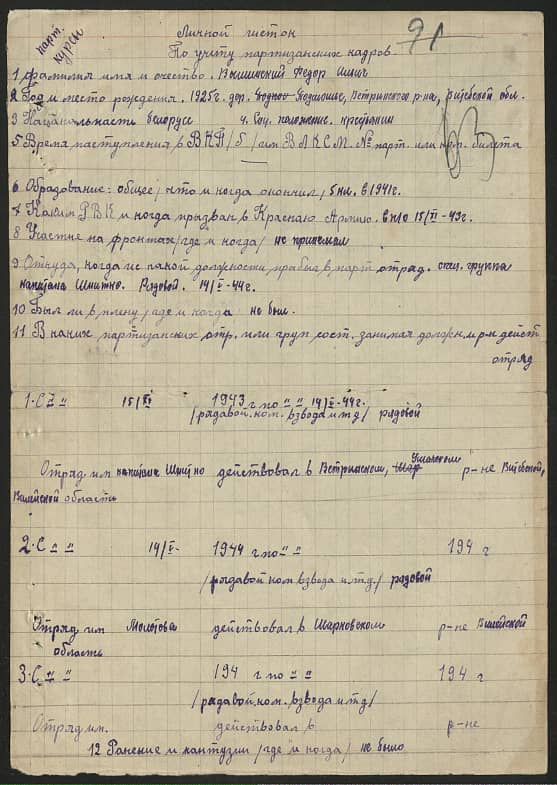 парт. курсы
Личной листок 91
По учёту партизанских кадров
1 фамилия имя и очество. Вышинский Федор
2 Год и место рождения. 1925г. дер. Ветринского р-на, Витебской обл.
3 Национальность белорус 4. Соц. положение. крестьянин
5 Время наступления в ВКП/б/ или ВЛКСМ. № парт. или ком. билета
—
6 Образование: общее, что и когда окончил, 5 кл. в 1941г.
7 Каким РВК и когда призван в Красную Армию. 15/XI-43г.
8 Участие на фронтах /где и когда/ не принемал
9 Откуда, когда и с какой должности прибыл в парт отряд. спец. группа
капитана Рядовой. 14/V-44г.
10 Был ли в плену, где и когда не был.
11 В каких партизанских отр. или груп сост. занимая должн. и р-н дейст
отряд
1. С " " 15/XI 1943 г по " " 14/V-44г.
/рядавой. ком. взвода и тд/ рядовой
Отряд им капитана действовал в Ветринском, р-не Витебской,
Вилейской область
2. С " " 14/V- 1944 г по " " 194 г
/рядавой ком взвода и тд/ рядовой
Отряд им Молотова действовал в Шарковском р-не Вилейской
область
3. С " " 194 г по " " 194 г
/рядавой. ком. взвода и тд/
Отряд им. действовал в р-не
12 Ранение и кантузии /где и когда/ не было